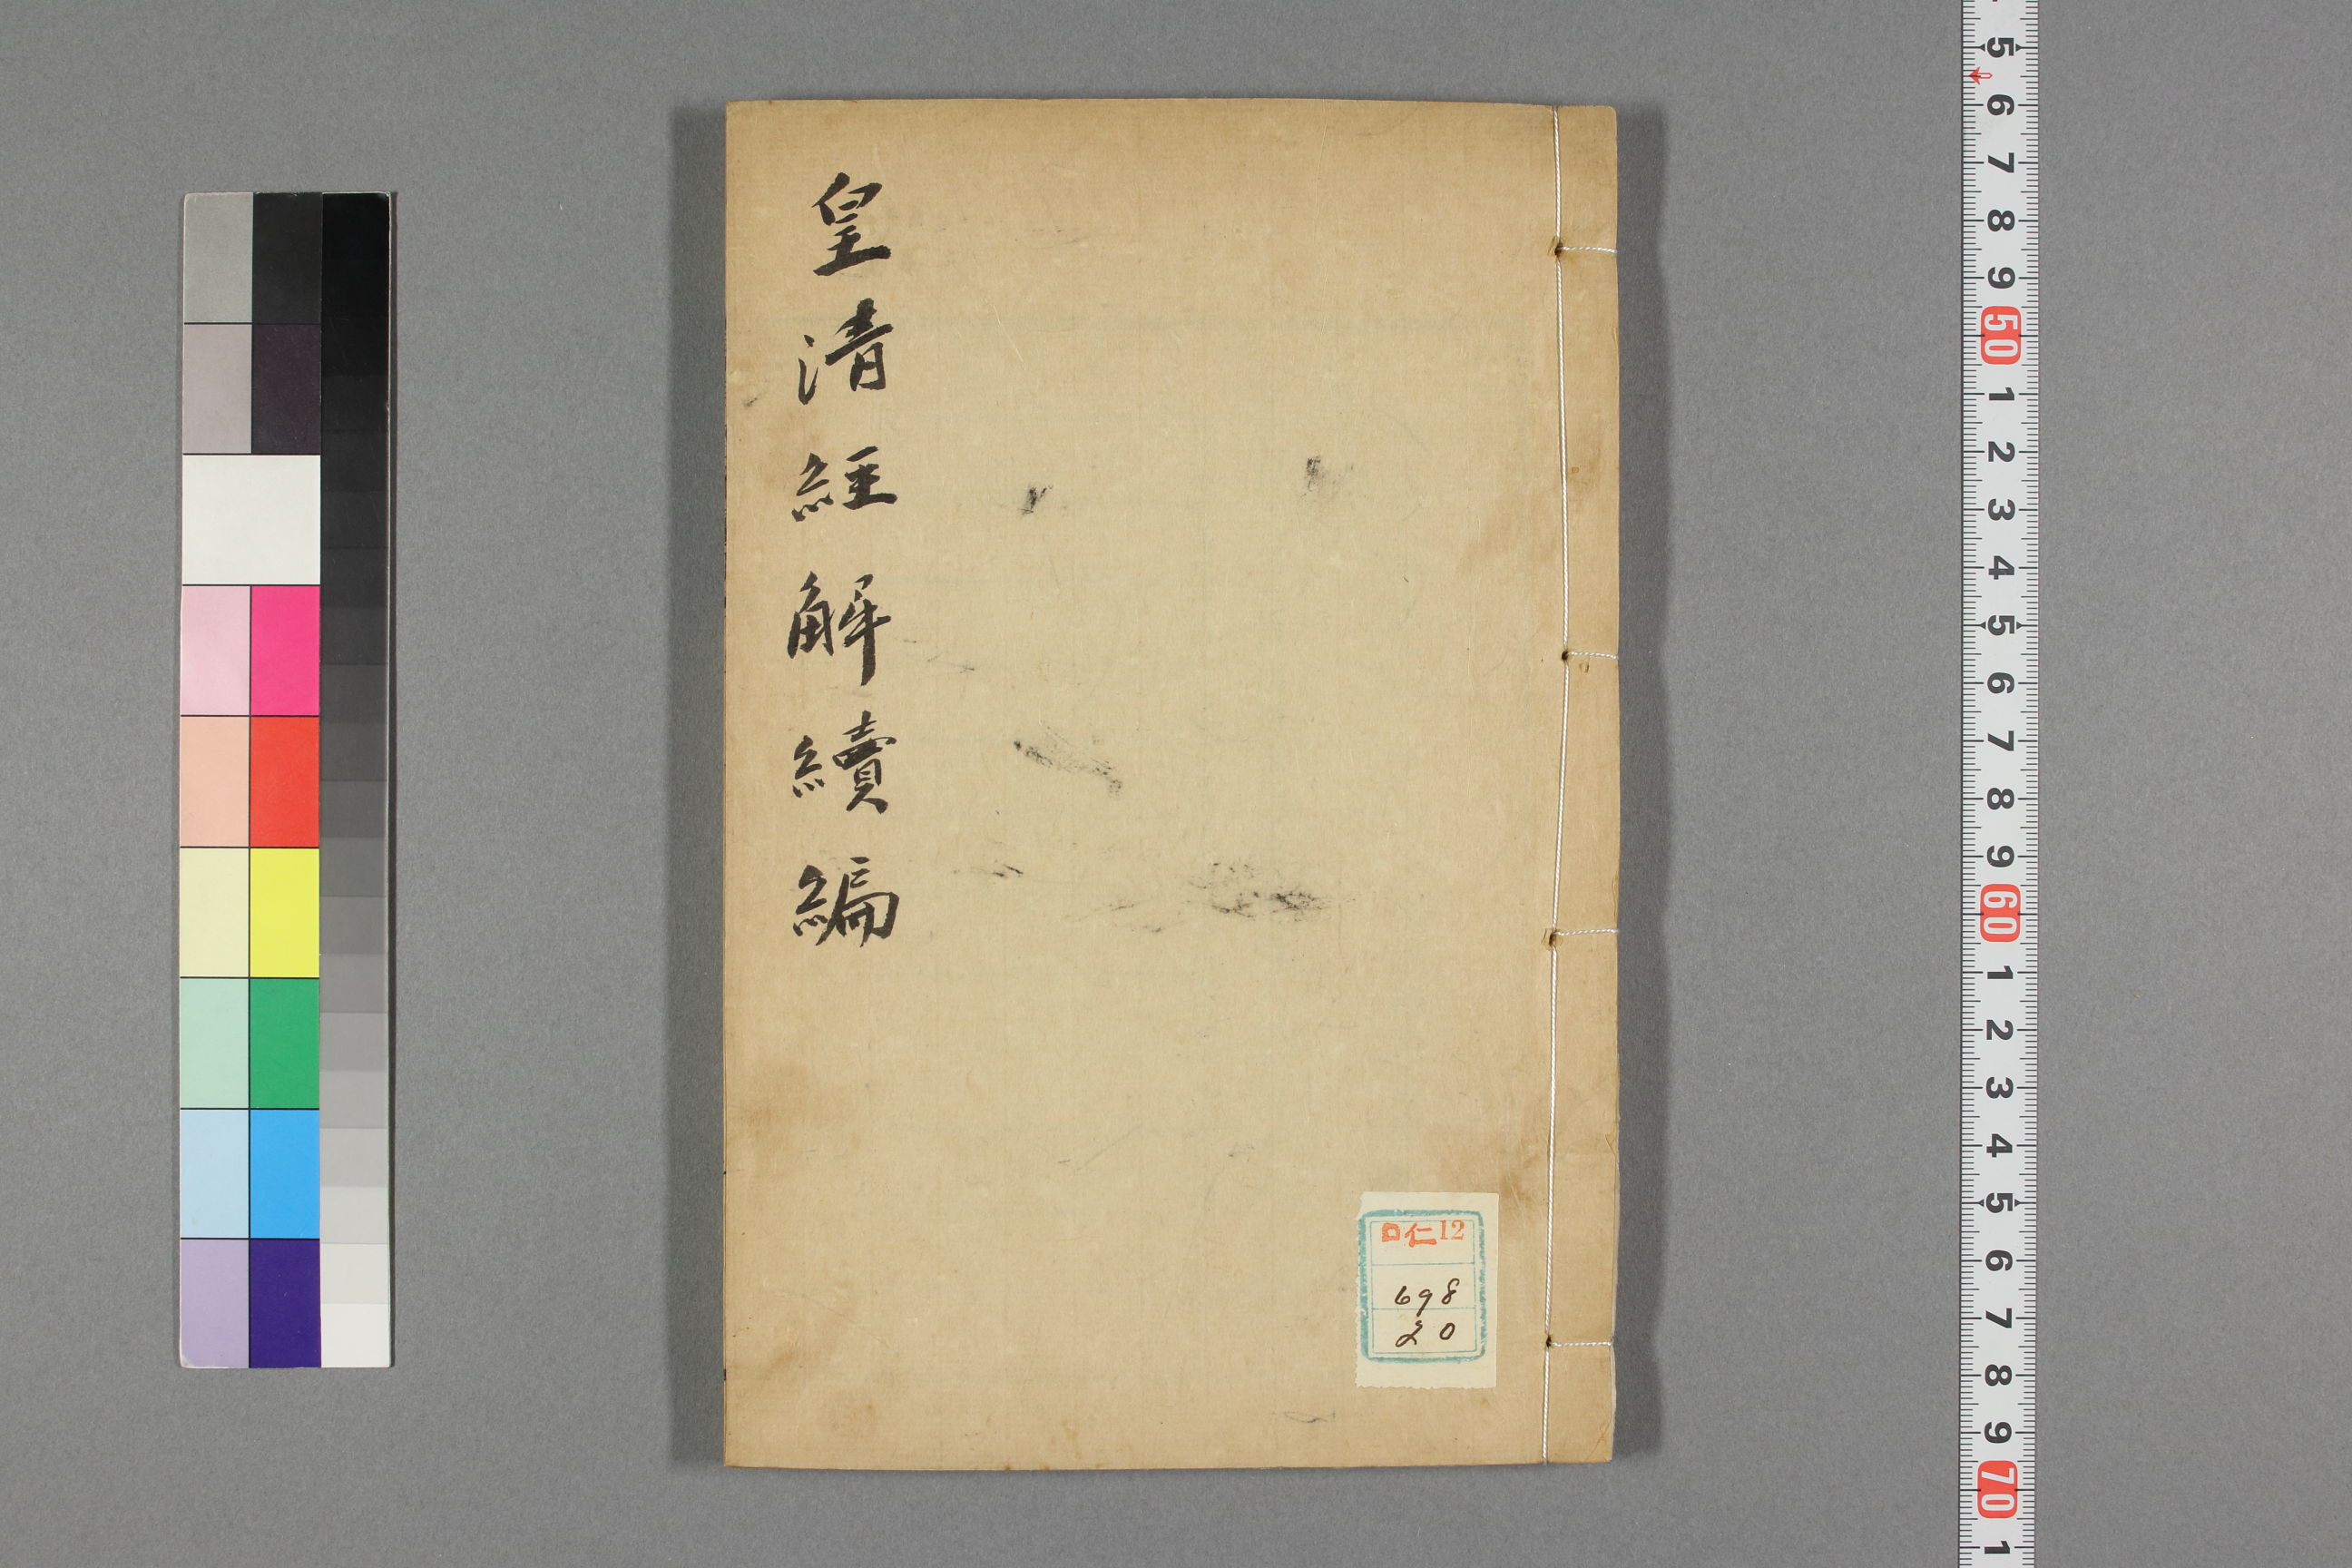 皇清経解續編
ロ仁12
698
20
5
6
7
8
9
50
1
2
3
4
5
6
7
8
9
60
1
2
3
4
5
6
7
8
9
70
1